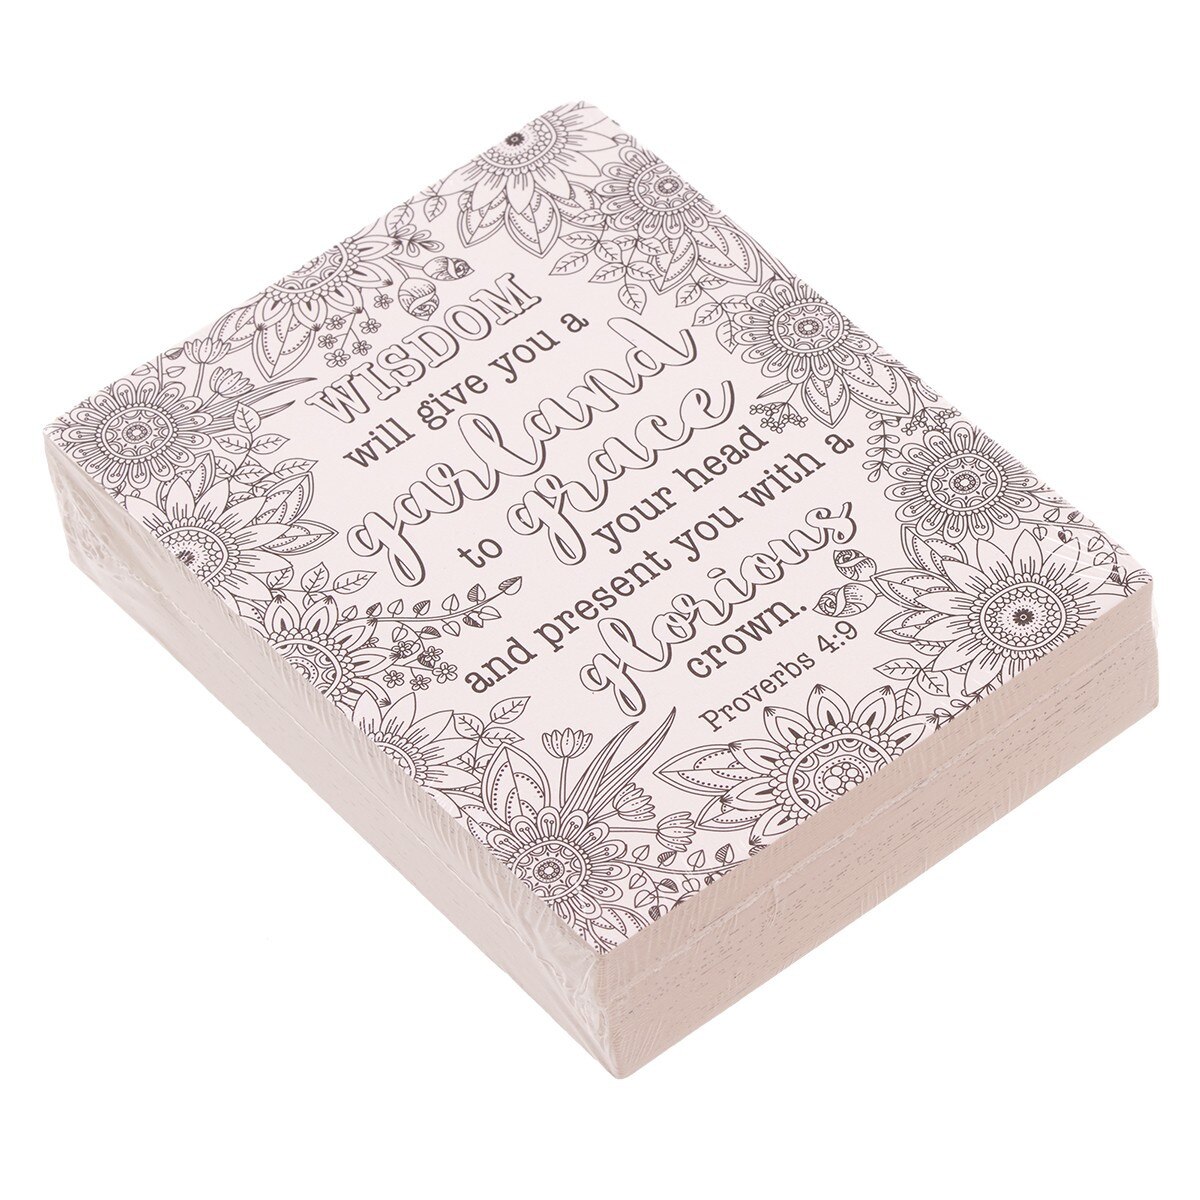 WISDOM
will give you a
garland
to grace
your head
and present you with a
glorious
crown.
Proverbs 4:9